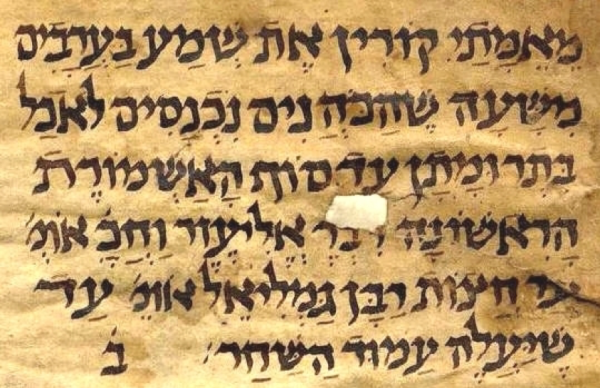 מאמתי קורין את שמע בערבים
משעה שהכהנים נכנסים לאכל
בתרומתן עד סוף האשמורת
הראשונה דבר אליעזר וחכ׳ אומ׳
עד חצות רבן גמליאל אומ׳ עד
שיעלה עמוד השחר׳ ב